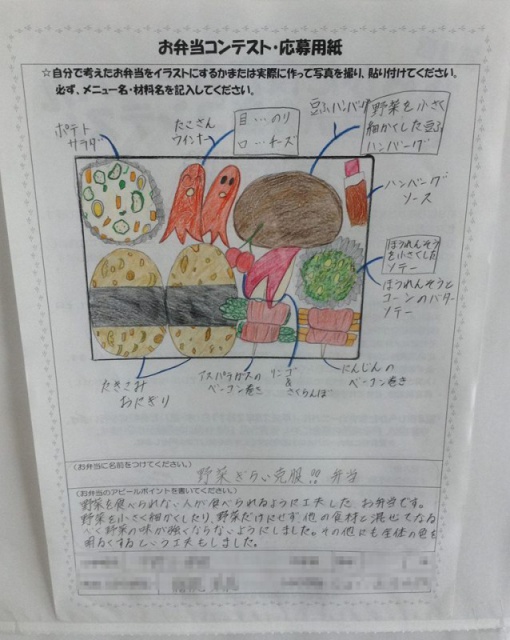 お弁当コンテスト・応募用紙
☆自分で考えたお弁当をイラストにするかまたは実際に作って写真を撮り、貼り付けてください。
必ず、メニュー名・材料名を記入してください。
ポテト
サラダ
たこさん
ウインナー
目…のり
口…チーズ
豆ふハンバーグ
野菜を小さく
細かくした豆ふ
ハンバーグ
ハンバーグ
ソース
ほうれんそう
を小さくした
ソテー
ほうれんそうと
コーンのバター
ソテー
たきこみ
おにぎり
アスパラガスの
ベーコン巻き
リンゴ
&
さくらんぼ
にんじんの
ベーコン巻き
(お弁当に名前をつけてください。)
野菜ぎらい克服!! 弁当
(お弁当のアピールポイントを書いてください。)
野菜を食べられない人が食べられるように工夫した お弁当です。
野菜を小さく細かくしたり、野菜だけにせず他の食材と混ぜてなる
べく野菜の味が強くならないようにしました。その他にも全体の色を
明るくするという工夫もしました。